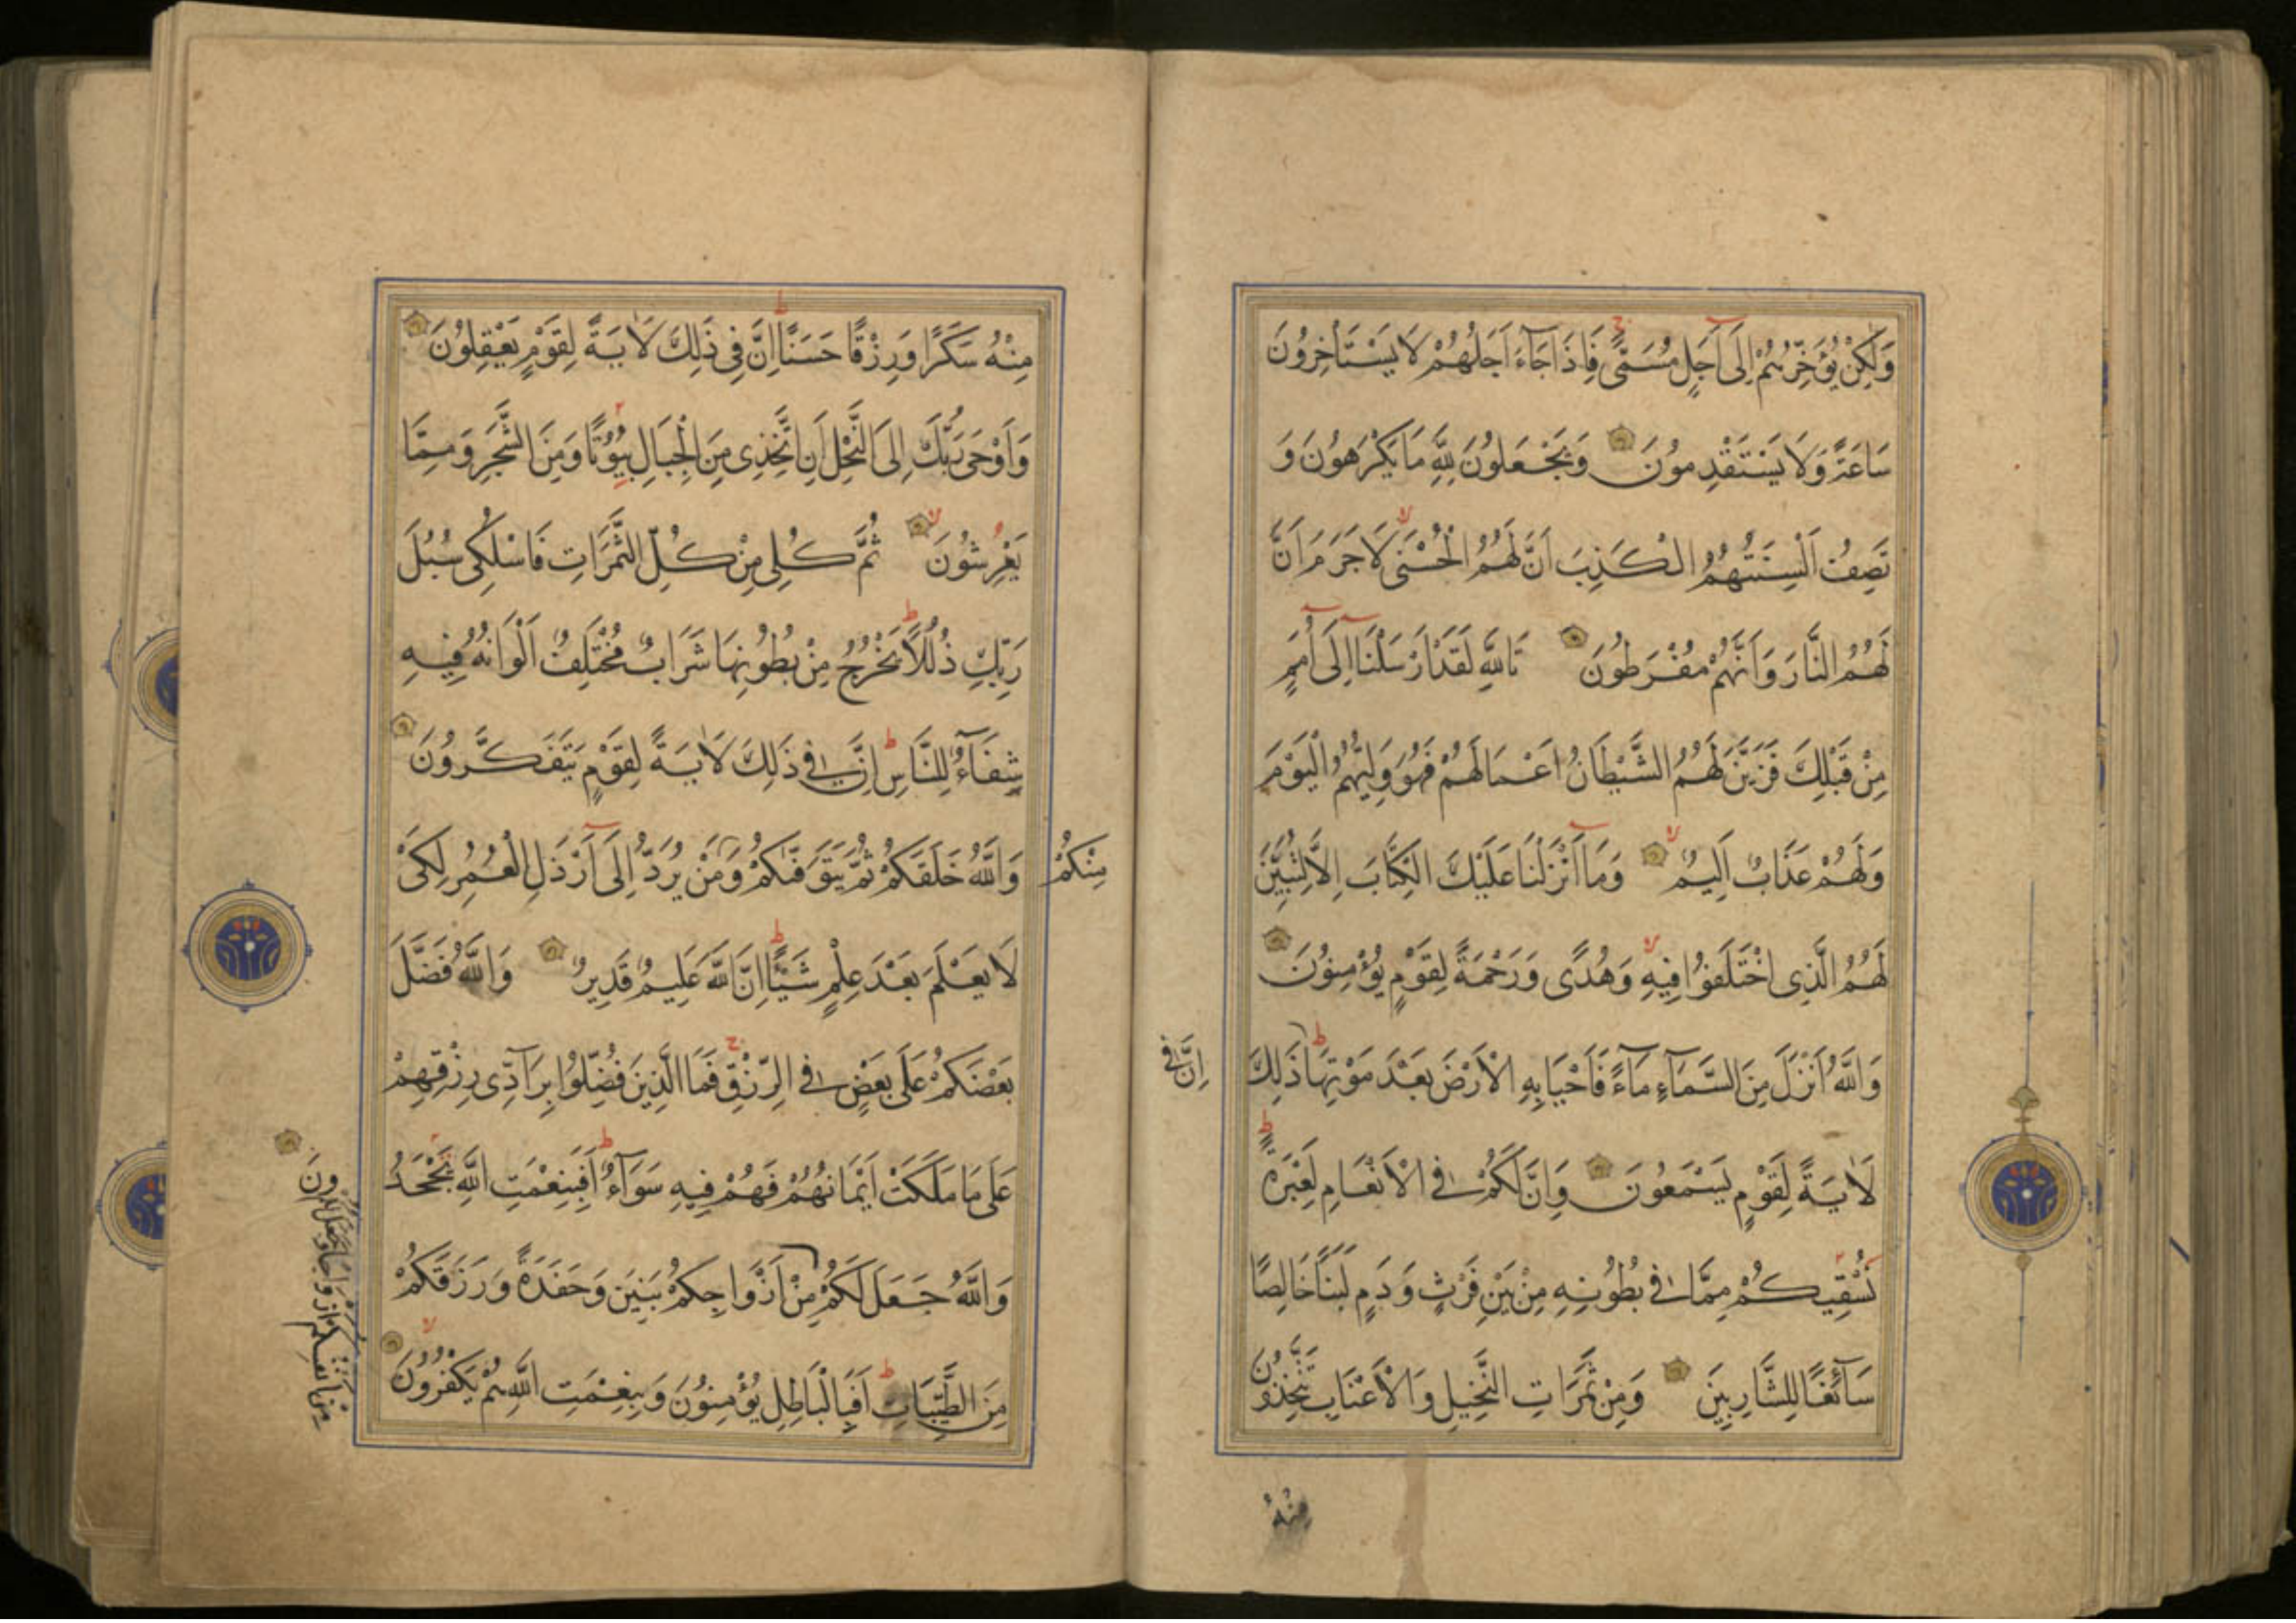 وَلٰكِنْ يُؤَخِّرُهُمْ اِلَى اَجَلٍ مُسَمًّى فَاِذَا جَاءَ اَجَلُهُمْ لَا يَسْتَأْخِرُونَ
سَاعَةً وَلَا يَسْتَقْدِمُونَ وَيَجْعَلُونَ لِلّٰهِ مَا يَكْرَهُونَ وَ
تَصِفُ اَلْسِنَتُهُمُ الْكَذِبَ اَنَّ لَهُمُ الْحُسْنٰى لَا جَرَمَ اَنَّ
لَهُمُ النَّارَ وَاَنَّهُمْ مُفْرَطُونَ تَاللّٰهِ لَقَدْ اَرْسَلْنَا اِلٰى اُمَمٍ
مِنْ قَبْلِكَ فَزَيَّنَ لَهُمُ الشَّيْطَانُ اَعْمَالَهُمْ فَهُوَ وَلِيُّهُمُ الْيَوْمَ
وَلَهُمْ عَذَابٌ اَلِيمٌ وَمَا اَنْزَلْنَا عَلَيْكَ الْكِتَابَ اِلَّا لِتُبَيِّنَ
لَهُمُ الَّذِى اخْتَلَفُوا فِيهِ وَهُدًى وَرَحْمَةً لِقَوْمٍ يُؤْمِنُونَ
وَاللّٰهُ اَنْزَلَ مِنَ السَّمَاءِ مَاءً فَاَحْيَا بِهِ الْاَرْضَ بَعْدَ مَوْتِهَا ذٰلِكَ
اِنَّ فِى
لَاٰيَةً لِقَوْمٍ يَسْمَعُونَ وَاِنَّ لَكُمْ فِى الْاَنْعَامِ لَعِبْرَةً
نُسْقِيكُمْ مِمَّا فِى بُطُونِهِ مِنْ بَيْنِ فَرْثٍ وَدَمٍ لَبَنًا خَالِصًا
سَائِغًا لِلشَّارِبِينَ وَمِنْ ثَمَرَاتِ النَّخِيلِ وَالْاَعْنَابِ تَتَّخِذُونَ
مِنْهُ
مِنْهُ سَكَرًا وَرِزْقًا حَسَنًا اِنَّ فِى ذٰلِكَ لَاٰيَةً لِقَوْمٍ يَعْقِلُونَ
وَاَوْحٰى رَبُّكَ اِلَى النَّحْلِ اَنِ اتَّخِذِى مِنَ الْجِبَالِ بُيُوتًا وَمِنَ الشَّجَرِ وَمِمَّا
يَعْرِشُونَ ثُمَّ كُلِى مِنْ كُلِّ الثَّمَرَاتِ فَاسْلُكِى سُبُلَ
رَبِّكِ ذُلُلًا يَخْرُجُ مِنْ بُطُونِهَا شَرَابٌ مُخْتَلِفٌ اَلْوَانُهُ فِيهِ
شِفَاءٌ لِلنَّاسِ اِنَّ فِى ذٰلِكَ لَاٰيَةً لِقَوْمٍ يَتَفَكَّرُونَ
وَاللّٰهُ خَلَقَكُمْ ثُمَّ يَتَوَفّٰكُمْ وَمَنْ يُرَدُّ اِلٰى اَرْذَلِ الْعُمُرِ لِكَىْ
مِنْكُمْ
لَا يَعْلَمَ بَعْدَ عِلْمٍ شَيْئًا اِنَّ اللّٰهَ عَلِيمٌ قَدِيرٌ وَاللّٰهُ فَضَّلَ
بَعْضَكُمْ عَلٰى بَعْضٍ فِى الرِّزْقِ فَمَا الَّذِينَ فُضِّلُوا بِرَادِّى رِزْقِهِمْ
عَلٰى مَا مَلَكَتْ اَيْمَانُهُمْ فَهُمْ فِيهِ سَوَاءٌ اَفَبِنِعْمَتِ اللّٰهِ يَجْحَدُ
ونَ
وَاللّٰهُ جَعَلَ لَكُمْ مِنْ اَزْوَاجِكُمْ بَنِينَ وَحَفَدَةً وَرَزَقَكُمْ
مِنْ اَنْفُسِكُمْ اَزْوَاجًا وَجَعَلَ لَكُمْ
مِنَ الطَّيِّبَاتِ اَفَبِالْبَاطِلِ يُؤْمِنُونَ وَبِنِعْمَتِ اللّٰهِ هُمْ يَكْفُرُونَ